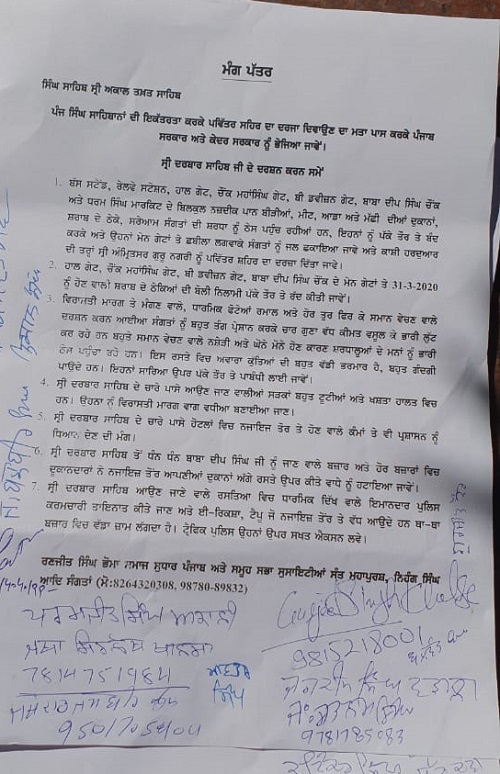 ਮੰਗ ਪੱਤਰ
ਸਿੰਘ ਸਾਹਿਬ ਸ੍ਰੀ ਅਕਾਲ ਤਖਤ ਸਾਹਿਬ
ਪੰਜ ਸਿੰਘ ਸਾਹਿਬਾਨਾਂ ਦੀ ਇਕੱਤਰਤਾ ਕਰਕੇ ਪਵਿੱਤਰ ਸ਼ਹਿਰ ਦਾ ਦਰਜਾ ਦਿਵਾਉਣ ਦਾ ਮਤਾ ਪਾਸ ਕਰਕੇ ਪੰਜਾਬ
ਸਰਕਾਰ ਅਤੇ ਕੇਦਰ ਸਰਕਾਰ ਨੂੰ ਭੇਜਿਆ ਜਾਵੇਂ।
ਸ੍ਰੀ ਦਰਬਾਰ ਸਾਹਿਬ ਜੀ ਦੇ ਦਰਸ਼ਨ ਕਰਨ ਸਮੇਂ
1. ਬੱਸ ਸਟੈਂਡ, ਰੇਲਵੇ ਸਟੇਸ਼ਨ, ਹਾਲ ਗੇਟ, ਚੌਂਕ ਮਹਾਂਸਿੰਘ ਗੇਟ, ਬੀ ਡਵੀਜ਼ਨ ਗੇਟ, ਬਾਬਾ ਦੀਪ ਸਿੰਘ ਚੌਂਕ
ਅਤੇ ਧਰਮ ਸਿੰਘ ਮਾਰਕਿਟ ਦੇ ਬਿਲਕੁਲ ਨਜ਼ਦੀਕ ਪਾਨ ਬੀੜੀਆਂ, ਮੀਟ, ਆਂਡਾ ਅਤੇ ਮੱਛੀ ਦੀਆਂ ਦੁਕਾਨਾਂ,
ਸ਼ਰਾਬ ਦੇ ਠੇਕੇ, ਸਰੇਆਮ ਸੰਗਤਾਂ ਦੀ ਸ਼ਰਧਾ ਨੂੰ ਠੇਸ ਪਹੁੰਚ ਰਹੀਆਂ ਹਨ, ਇਹਨਾਂ ਨੂੰ ਪੱਕੇ ਤੌਰ ਤੇ ਬੰਦ
ਕਰਕੇ ਅਤੇ ਉਹਨਾਂ ਮੇਨ ਗੇਟਾਂ ਤੇ ਛਬੀਲਾ ਲਗਵਾਕੇ ਸੰਗਤਾਂ ਨੂੰ ਜਲ ਛਕਾਇਆ ਜਾਵੇ ਅਤੇ ਕਾਸ਼ੀ ਹਰਦੁਆਰ
ਦੀ ਤਰ੍ਹਾਂ ਸ੍ਰੀ ਅੰਮ੍ਰਿਤਸਰ ਗੁਰੂ ਨਗਰੀ ਨੂੰ ਪਵਿੱਤਰ ਸ਼ਹਿਰ ਦਾ ਦਰਜਾ ਦਿੱਤਾ ਜਾਵੇ।
2. ਹਾਲ ਗੇਟ, ਚੌਂਕ ਮਹਾਂਸਿੰਘ ਗੇਟ, ਬੀ ਡਵੀਜ਼ਨ ਗੇਟ, ਬਾਬਾ ਦੀਪ ਸਿੰਘ ਚੌਂਕ ਦੇ ਮੇਨ ਗੇਟਾਂ ਤੇ 31-3-2020
ਨੂੰ ਹੋਣ ਵਾਲੀ ਸ਼ਰਾਬ ਦੇ ਠੇਕਿਆਂ ਦੀ ਬੋਲੀ ਨਿਲਾਮੀ ਪੱਕੇ ਤੌਰ ਤੇ ਰੱਦ ਕੀਤੀ ਜਾਵੇਂ।
3. ਵਿਰਾਸਤੀ ਮਾਰਗ ਤੇ ਮੰਗਣ ਵਾਲੇ, ਧਾਰਮਿਕ ਫੋਟੋਆਂ ਰੁਮਾਲ ਅਤੇ ਹੋਰ ਤੁਰ ਫਿਰ ਕੇ ਸਮਾਨ ਵੇਚਣ ਵਾਲੇ
ਦਰਸ਼ਨ ਕਰਨ ਆਈਆ ਸੰਗਤਾਂ ਨੂੰ ਬਹੁਤ ਤੰਗ ਪ੍ਰੇਸ਼ਾਨ ਕਰਕੇ ਚਾਰ ਗੁਣਾ ਵੱਧ ਕੀਮਤ ਵਸੂਲ ਕੇ ਭਾਰੀ ਲੁੱਟ
ਕਰ ਰਹੇ ਹਨ ਬਹੁਤੇ ਸਮਾਨ ਵੇਚਣ ਵਾਲੇ ਨਸ਼ੇੜੀ ਅਤੇ ਘੋਨੇ ਮੋਨੇ ਹੋਣ ਕਾਰਣ ਸ਼ਰਧਾਲੂਆਂ ਦੇ ਮਨਾਂ ਨੂੰ ਭਾਰੀ
ਠੇਸ ਪਹੁੰਚਾ ਰਹੇ ਹਨ। ਇਸ ਰਸਤੇ ਵਿਚ ਅਵਾਰਾ ਕੁੱਤਿਆਂ ਦੀ ਬਹੁਤ ਵੱਡੀ ਭਰਮਾਰ ਹੈ, ਬਹੁਤ ਗੰਦਗੀ
ਪਾਉਂਦੇ ਹਨ। ਇਹਨਾਂ ਸਾਰਿਆ ਉਪਰ ਪੱਕੇ ਤੌਰ ਤੇ ਪਾਬੰਧੀ ਲਾਈ ਜਾਵੇਂ।
4. ਸ੍ਰੀ ਦਰਬਾਰ ਸਾਹਿਬ ਦੇ ਚਾਰੇ ਪਾਸੇ ਆਉਣ ਜਾਣ ਵਾਲੀਆਂ ਸੜਕਾਂ ਬਹੁਤ ਟੁਟੀਆਂ ਅਤੇ ਖਸ਼ਤਾ ਹਾਲਤ ਵਿਚ
ਹਨ। ਉਹਨਾ ਨੂੰ ਵਿਰਾਸਤੀ ਮਾਰਗ ਵਾਗ ਵਧੀਆ ਬਣਾਈਆ ਜਾਣ।
5. ਸ੍ਰੀ ਦਰਬਾਰ ਸਾਹਿਬ ਦੇ ਚਾਰੇ ਪਾਸੇ ਹੋਟਲਾਂ ਵਿਚ ਨਜਾਇਜ ਤੌਰ ਤੇ ਹੋਣ ਵਾਲੇ ਕੰਮਾਂ ਤੇ ਵੀ ਪ੍ਰਸ਼ਾਸਨ ਨੂੰ
ਧਿਆਨ ਦੇਣ ਦੀ ਮੰਗ।
6. ਸ੍ਰੀ ਦਰਬਾਰ ਸਾਹਿਬ ਤੋਂ ਧੰਨ ਧੰਨ ਬਾਬਾ ਦੀਪ ਸਿੰਘ ਜੀ ਨੂੰ ਜਾਣ ਵਾਲੇ ਬਜ਼ਾਰ ਅਤੇ ਹੋਰ ਬਜ਼ਾਰਾਂ ਵਿਚ
ਦੁਕਾਨਦਾਰਾਂ ਨੇ ਨਜਾਇਜ਼ ਤੌਰ ਆਪਣੀਆਂ ਦੁਕਾਨਾਂ ਅੱਗੇ ਰਸਤੇ ਉਪਰ ਕੀਤੇ ਵਾਧੇ ਨੂੰ ਹਟਾਇਆ ਜਾਵੇਂ।
7. ਸ੍ਰੀ ਦਰਬਾਰ ਸਾਹਿਬ ਆਉਣ ਜਾਣੇ ਵਾਲੇ ਰਸਤਿਆ ਵਿਚ ਧਾਰਮਿਕ ਦਿੱਖ ਵਾਲੇ ਇਮਾਨਦਾਰ ਪੁਲਿਸ
ਕਰਮਚਾਰੀ ਤਾਇਨਾਤ ਕੀਤੇ ਜਾਣ ਅਤੇ ਈ-ਰਿਕਸ਼ਾ, ਟੈਂਪੂ ਜੋ ਨਜਾਇਜ ਤੌਰ ਤੇ ਵੱਧ ਆਉਂਦੇ ਹਨ ਥਾਂ-ਥਾਂ
ਬਜ਼ਾਰ ਵਿਚ ਵੱਡਾ ਜ਼ਾਮ ਲੱਗਦਾ ਹੈ। ਟ੍ਰੈਫਿਕ ਪੁਲਿਸ ਉਹਨਾਂ ਉਪਰ ਸਖਤ ਐਕਸਨ ਲਵੇ।
ਰਣਜੀਤ ਸਿੰਘ ਭੋਮਾ ਸਮਾਜ ਸੁਧਾਰ ਪੰਜਾਬ ਅਤੇ ਸਮੂਹ ਸਭਾ ਸੁਸਾਇਟੀਆਂ ਸੰਤ ਮਹਾਪੁਰਸ਼, ਨਿਹੰਗ ਸਿੰਘ
ਆਦਿ ਸੰਗਤਾਂ (ਮੋ:8264320308, 98780-89832)
ਪਰਮਜੀਤ ਸਿੰਘ ਅਕਾਲੀ
ਜਥਾ ਸਿਰਲੱਥ ਖਾਲਸਾ
7814751984
9815218001
9781785083